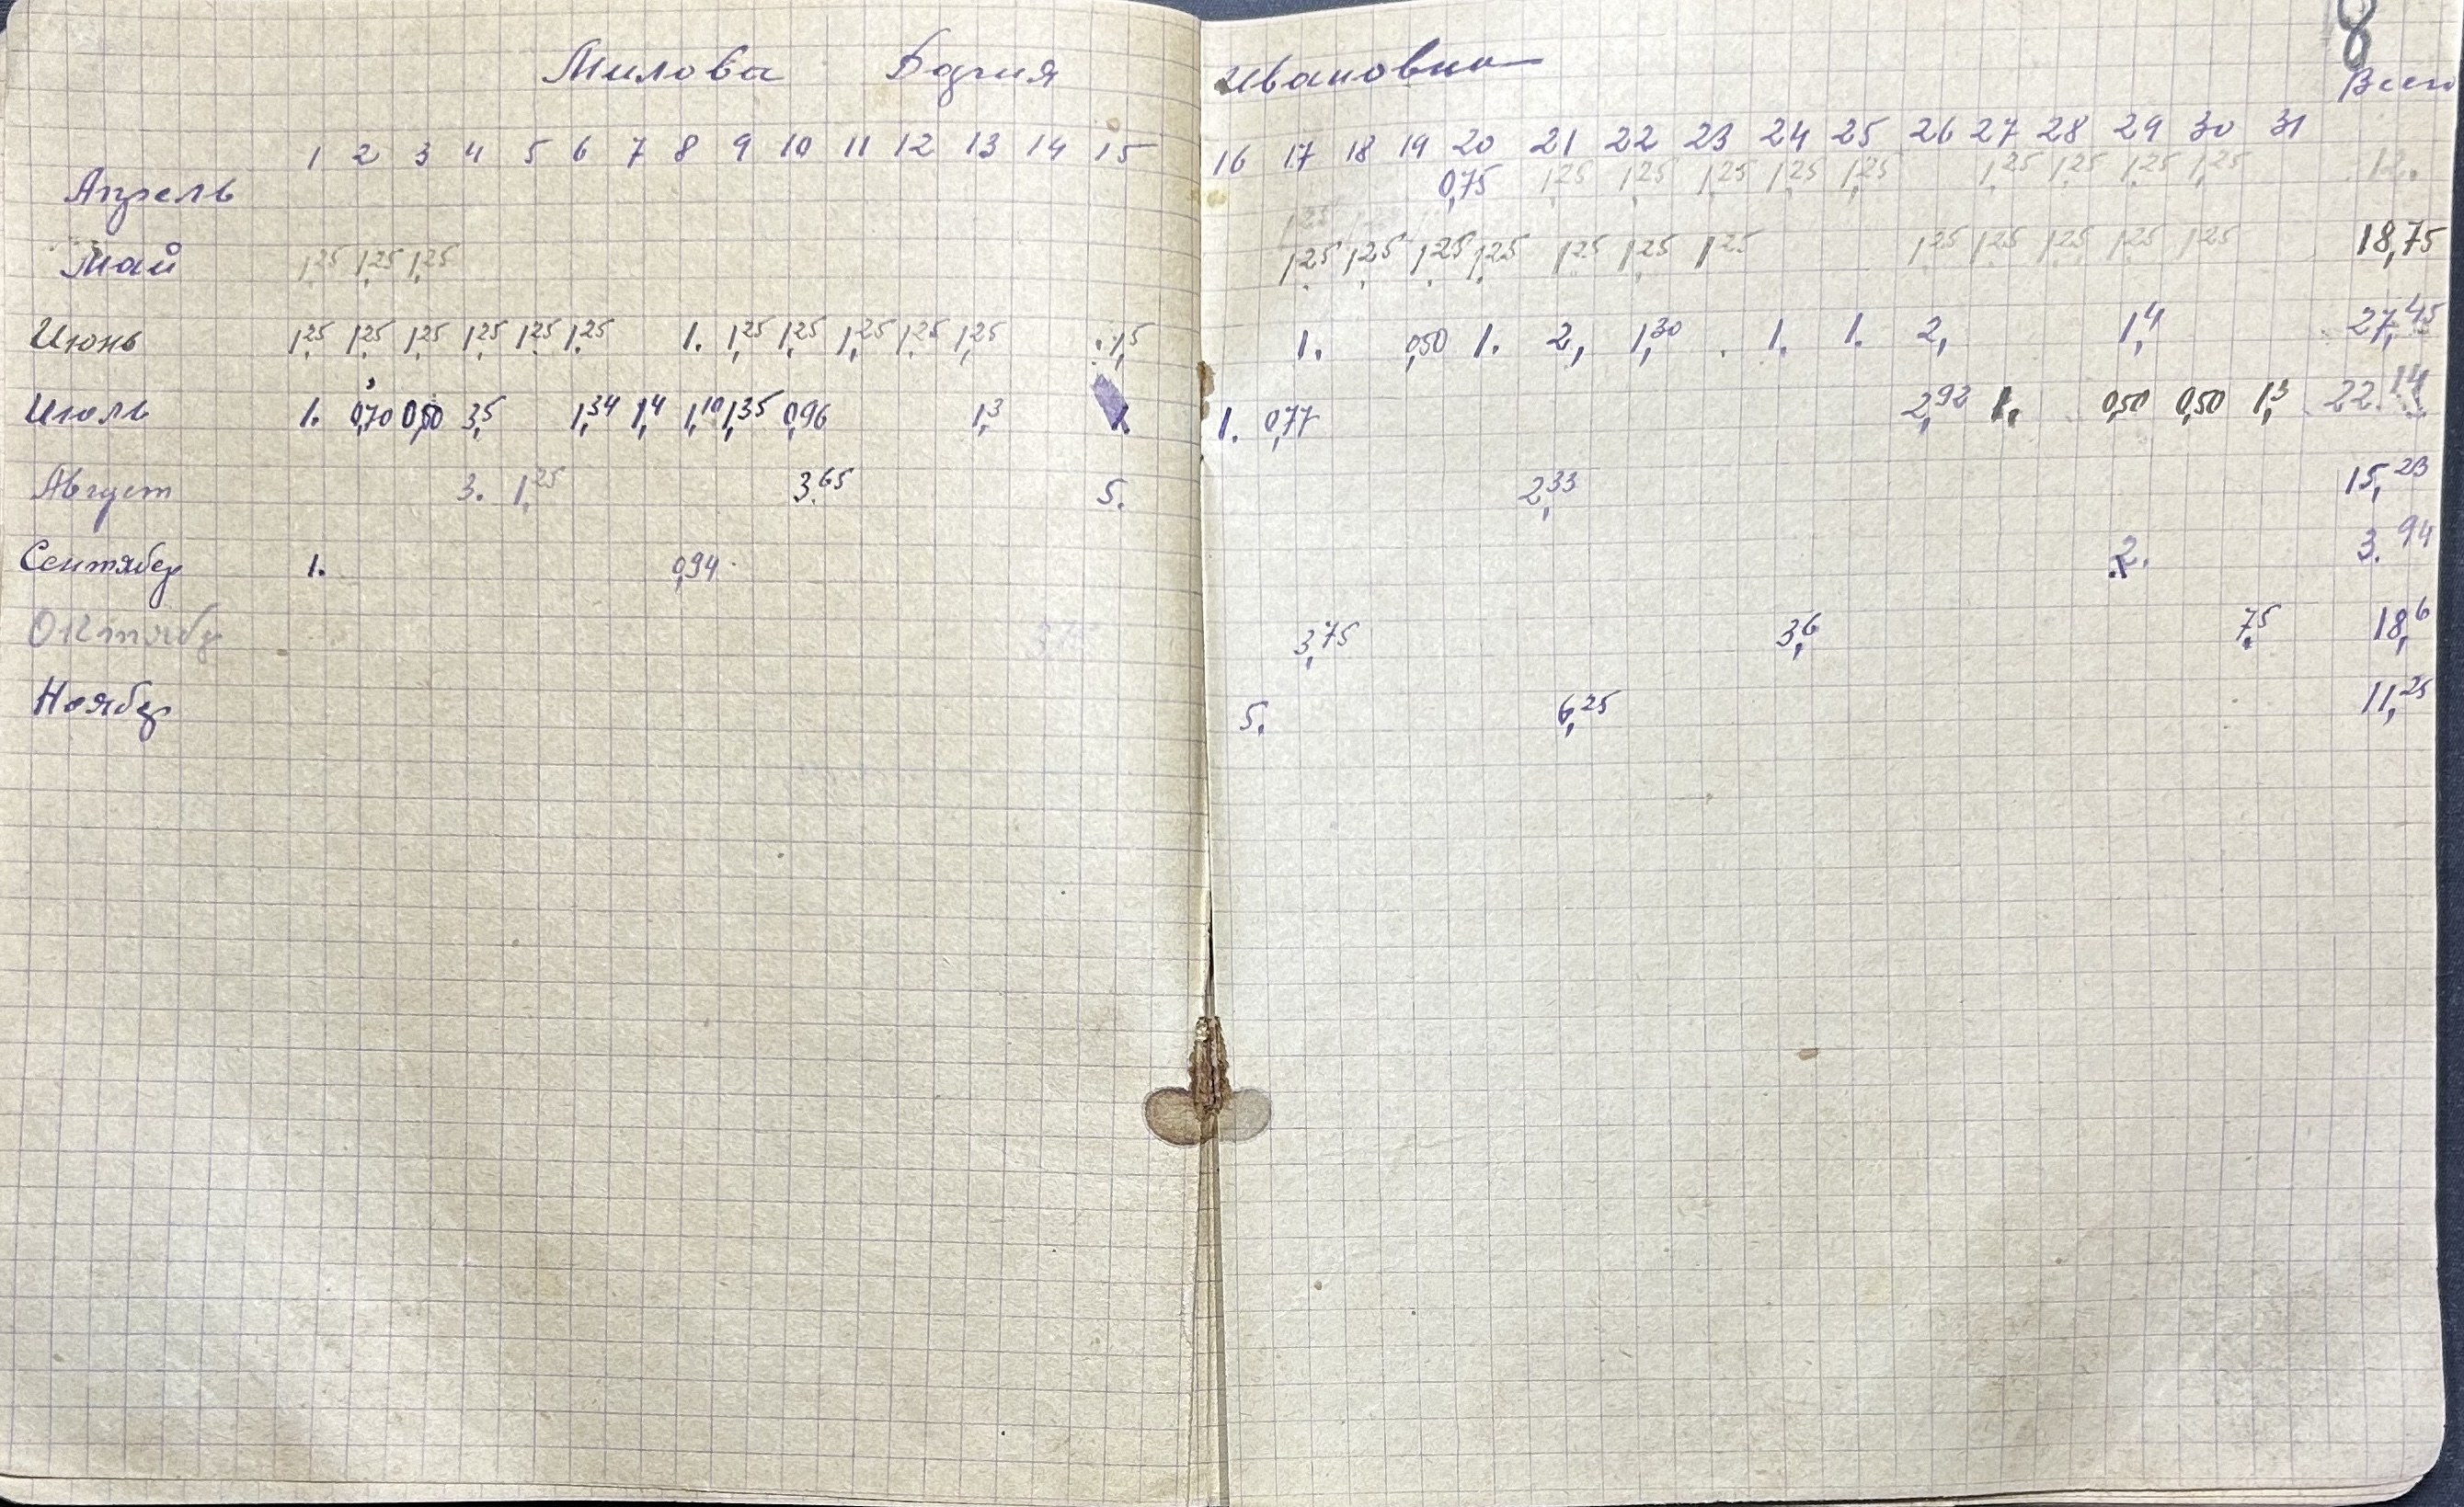 8
Милова Дария Ивановна Всего
1 2 3 4 5 6 7 8 9 10 11 12 13 14 15 16 17 18 19 20 21 22 23 24 25 26 27 28 29 30 31
Апрель 0,75 1,25 1,25 1,25 1,25 1,25 1,25 1,25 1,25 1,25 12.
Май 1,25 1,25 1,25 1,25 1,25 1,25 1,25 1,25 1,25 1,25 1,25 1,25 1,25 1,25 1,25 18,75
Июнь 1,25 1,25 1,25 1,25 1,25 1,25 1. 1,25 1,25 1,25 1,25 1,25 1,5 1. 0,50 1. 2, 1,30 1. 1. 2, 1,4 27,45
Июль 1. 0,70 0,50 3,5 1,34 1,4 1,10 1,35 0,96 1,3 1. 0,77 2,92 1. 0,50 0,50 1,3 22.14
Август 3. 1,25 3,65 5. 2,33 15,23
Сентябр 1. 0,94 2. 3.94
Октябр 3,75 3,6 7,5 18,6
Ноябр 5. 6,25 11,25